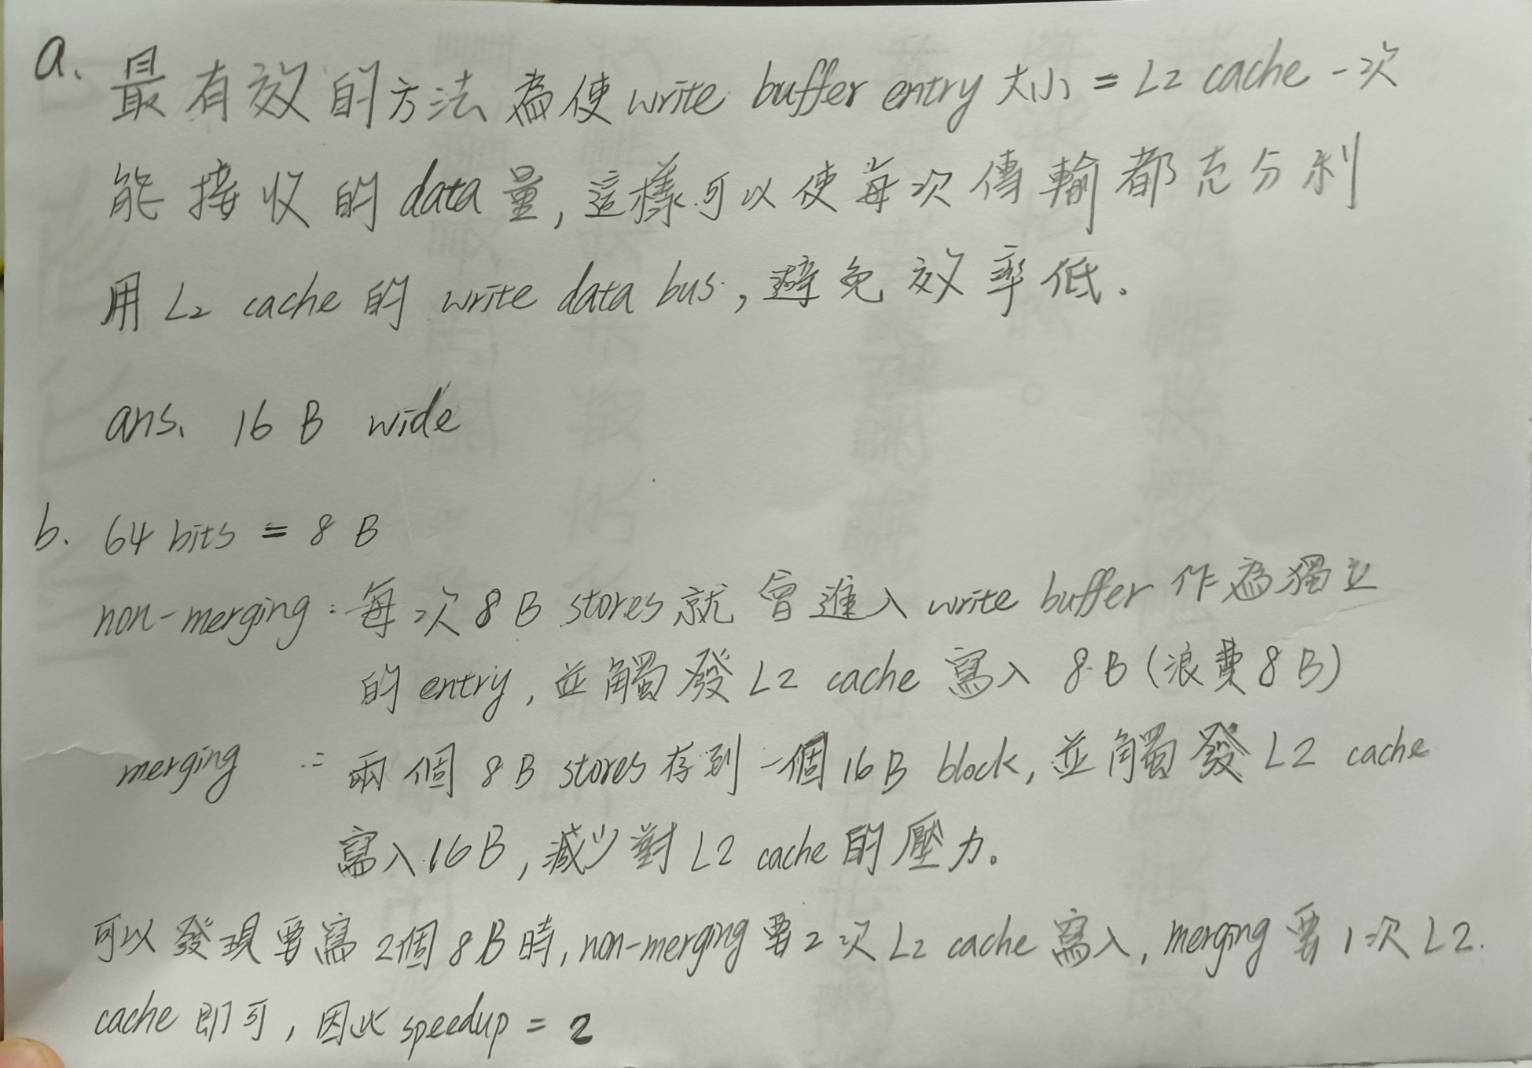 a. 最有效的方法為使 write buffer entry 大小 = L2 cache 一次
能接收的 data 量, 這樣可以使每次傳輸都充分利
用 L2 cache 的 write data bus, 避免效率低.
ans. 16 B wide
b. 64 bits = 8 B
non-merging : 每次 8 B stores 就會進入 write buffer 作為獨立
的 entry, 並觸發 L2 cache 寫入 8 B (浪費 8 B)
merging : 兩個 8 B stores 存到一個 16 B block, 並觸發 L2 cache
寫入 16 B, 減少對 L2 cache 的壓力。
可以發現要寫 2個 8 B 時, non-merging 要 2 次 L2 cache 寫入, merging 要 1 次 L2
cache 即可, 因此 speedup = 2